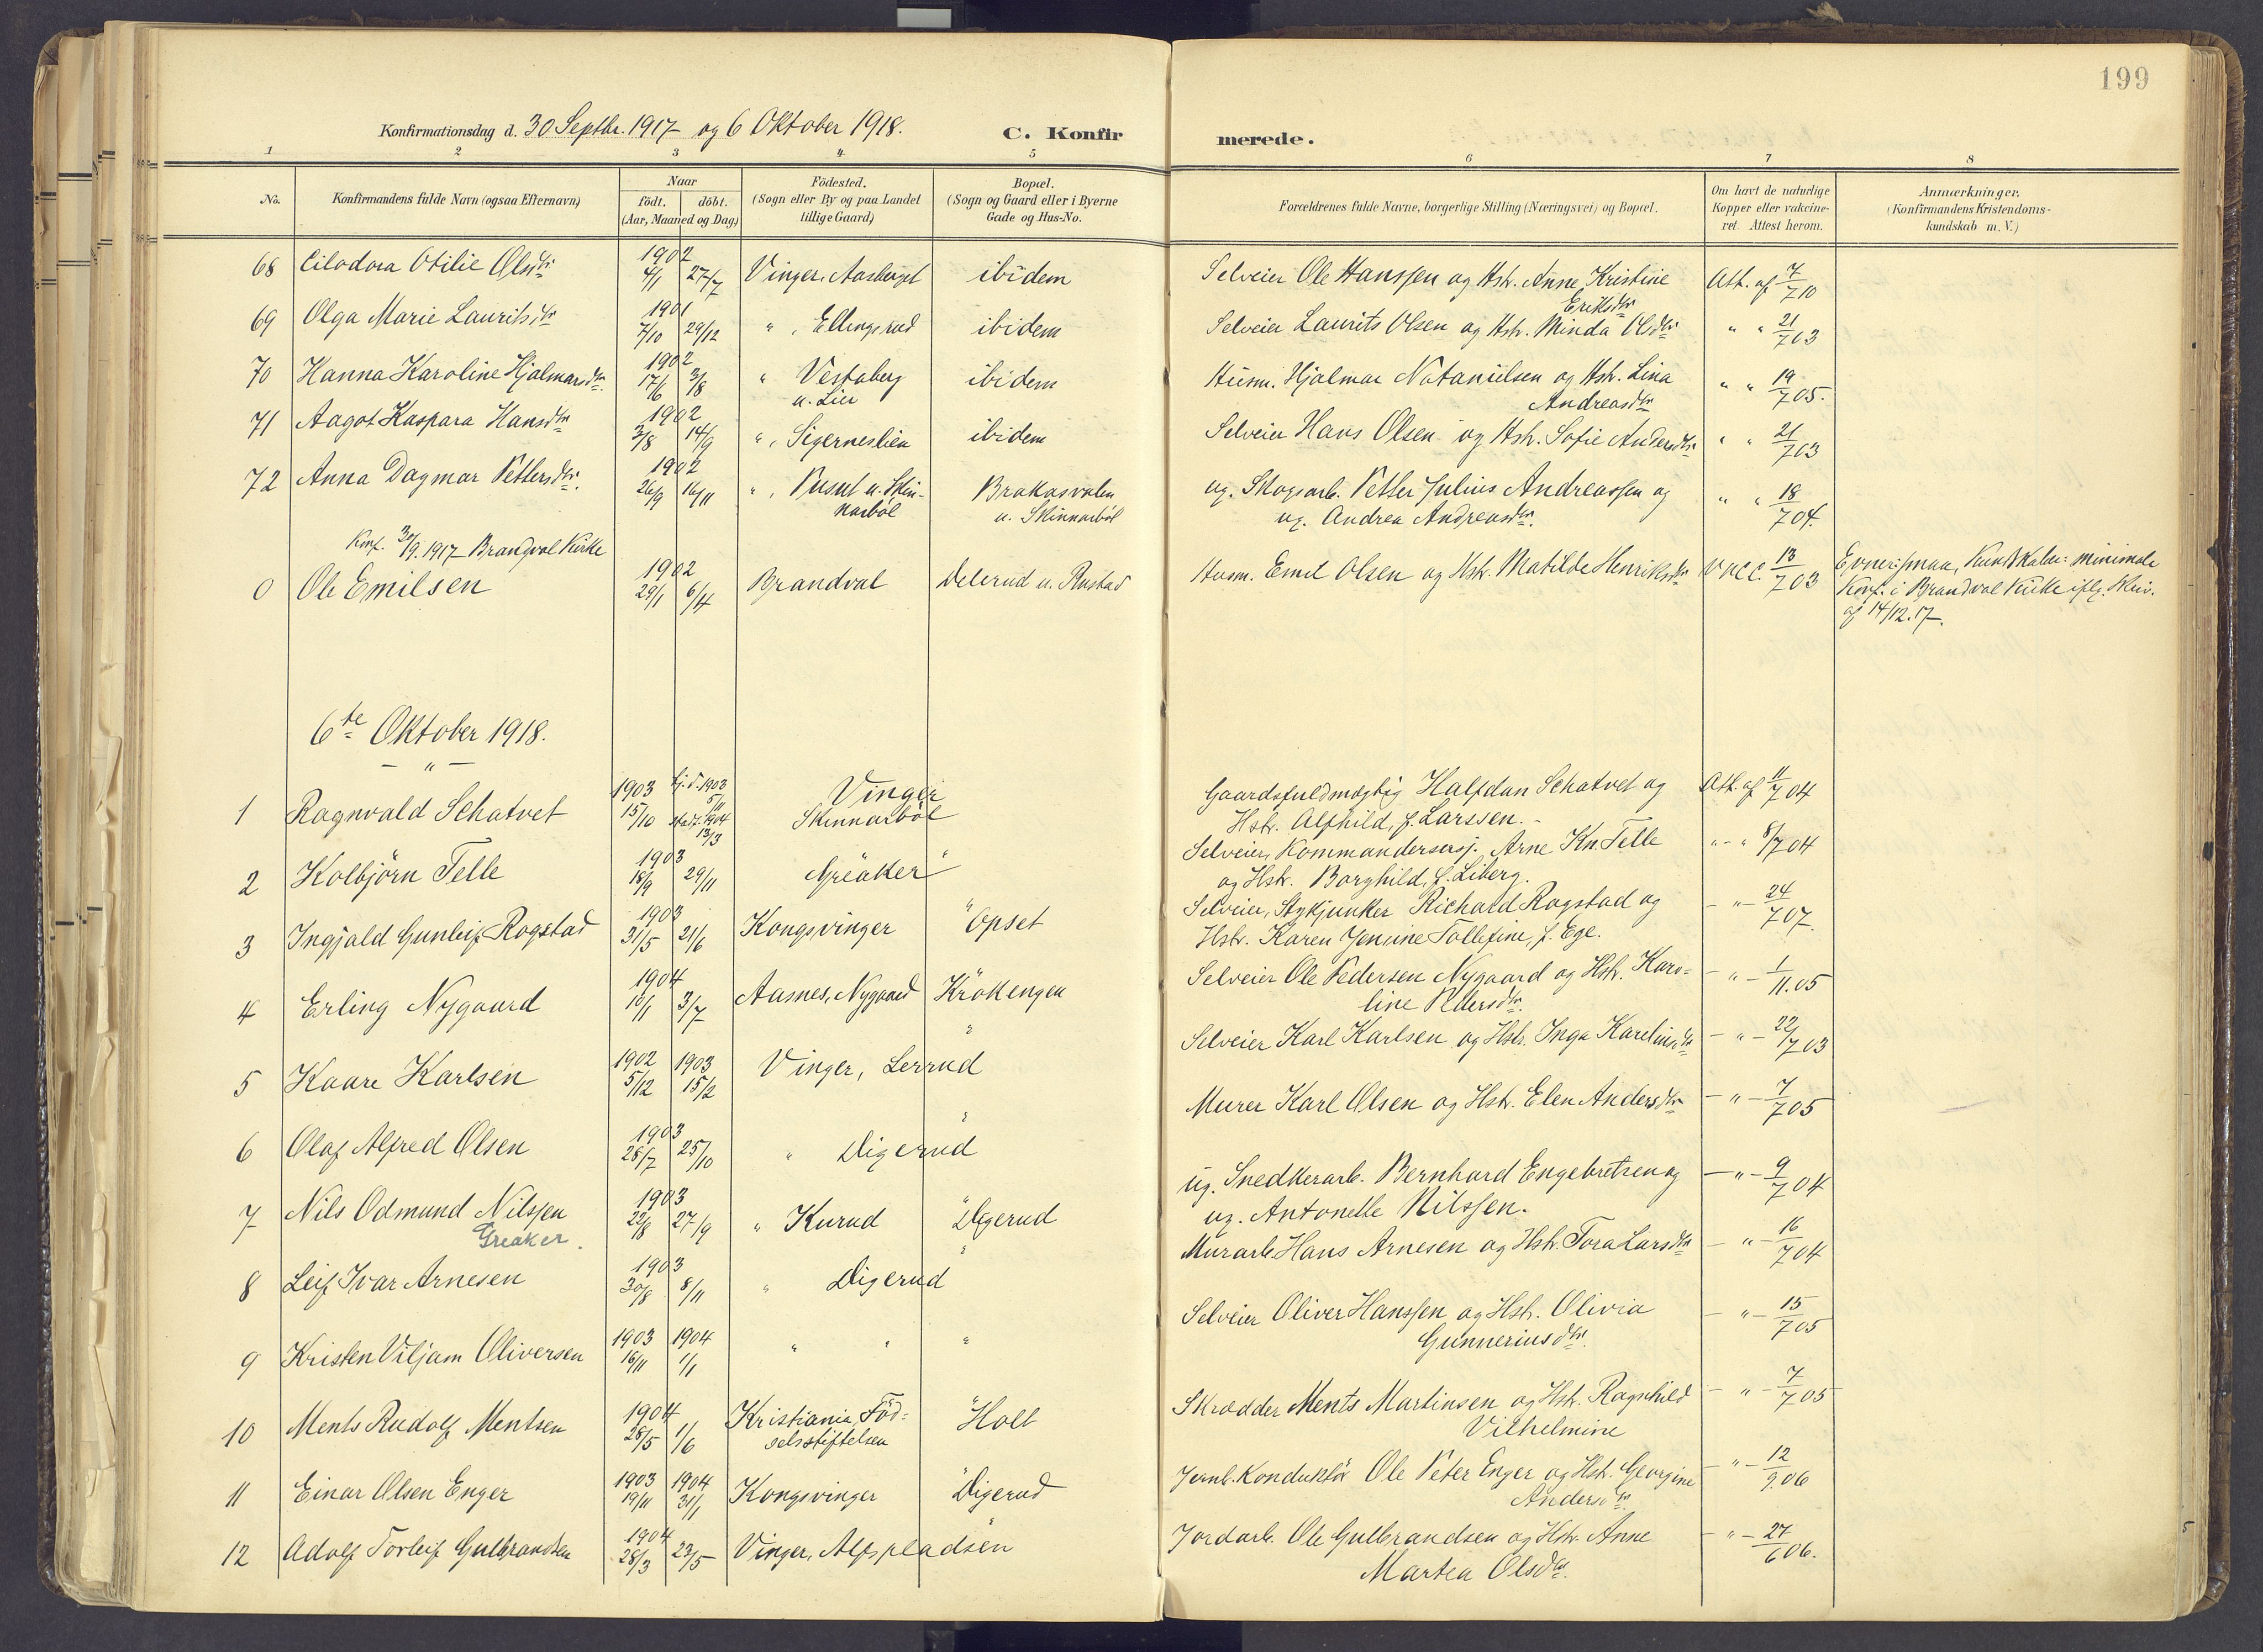 199
Konfirmationsdag d. 30 Septbr. 1917 og 6 Oktober 1918. C. Konfirmerede.
1 2 3 4 5 6 7 8
No. Konfirmandens fulde Navn (ogsaa Efternavn) Naar födt. döbt. (Aar, Maaned og Dag) Födested. (Sogn eller By og paa Landet tillige Gaard) Bopæl. (Sogn og Gaard eller i Byerne Gade og Hus-No. Forældrenes fulde Navne, borgerlige Stilling (Næringsvei) og Bopæl. Om havt de naturlige Kopper eller vakcineret. Attest herom. Anmærkninger. (Konfirmandens Kristendomskundskab m. V.)
68 Otilie Olsdtr. 1902 4/1 27/7 Vinger, Aasberget ibidem Selveier Ole Hanssen og Hstr. Anne Kristine Eriksdtr Att. af 7/7 10
69 Olga Marie Lauritsdtr 1901 7/10 29/12 " , Ellingsrud ibidem Selveier Laurits Olsen og Hstr. Minda Olsdtr " " 21/7 03
70 Hanna Karoline Hjalmarsdtr. 1902 17/6 3/8 " Vestaberg u. Lier ibidem Husm. Hjalmar Natanielsen og Hstr. Lina Andreasdtr " " 19/7 05.
71 Aagot Kaspara Hansdtr 1902 3/8 14/9 " , Sigerneslien ibidem Selveier Hans Olsen og Hstr. Sofie Andersdtr " " 21/7 03
72 Anna Dagmar Pettersdtr. 1902 26/9 16/11 " , u. Skinnarböl u. Skinnarböl ug. Skogsarb. Petter Julius Andreassen og ug. Andrea Andreasdtr. " " 18/7 04.
Konf. 30/9. 1917 Brandval Kirke
0 Ole Emilsen 1902 29/1 6/4 Brandval u. Rustad Husm. Emil Olsen og Hstr. Matilde Henriksdtr Vacc. 13/7 03 Evner: smaa, Kundskaber: minimale
Konf. i Brandval Kirke iflg. Skriv.
af 14/12. 17.
6te Oktober 1918.
- " -
1 Ragnvald Schatvet 1903 15/10 hj. d. 1903 5/11 stadf. 1904 13/3 Vinger Skinnarböl Gaardsfuldmægtig Halfdan Schatvet og Hstr. Alfhild, f. Larssen. - Att. af 11/7 04
2 Kolbjörn Telle 1903 18/9 29/11 Greaker " Selveier, Kommandersersj. Arne Kn. Telle og Hstr. Borghild, f. Liberg. " - " 8/7 04
3 Ingjald Gunleif Rogstad 1903 31/5 21/6 Kongsvinger " Opset Selveier, Stykjunker Richard Rogstad og Hstr. Karen Jensine Tollefine, f. Ege. - " - 24/7 07.
4 Erling Nygaard 1904 10/1 3/7 Aasnes, Nygaard Krökengen Selveier Ole Pedersen Nygaard og Hstr. Karoline Pedersdtr. - " - 1/11.05
5 Kaare Karlsen 1902 5/12 1903 15/2 Vinger, Lerrud " Selveier Karl Karlsen og Hstr. Inga Kareliusdtr - " - 22/7 03
6 Olaf Alfred Olsen 1903 28/7 25/10 " Digerud " Murer Karl Olsen og Hstr. Elen Andersdtr - " - 7/7 05
7 Nils Odmund Nilssen Greaker. 1903 22/8 27/9 " Kurud " Digerud ug. Snedkerarb. Bernhard Engebretsen og ug. Antonette Nilssen. - " - 9/7 04
8 Leif Ivar Arnesen 1903 30/8 8/11 " Digerud " Murarb. Hans Arnesen og Hstr. Tora Larsdtr - " - 16/7 04
9 Kristen Viljam Oliversen 1903 16/11 1904 1/1 " " " Selveier Oliver Hanssen og Hstr. Olivia Gunneriusdtr. - " - 15/7 05
10 Ments Rudolf Mentsen 1904 28/5 1/6 Kristiania, Födselsstiftelsen " Holt Skrædder Ments Martinsen og Hstr. Ragnhild Vilhelmine - " - 7/7 05
11 Einar Olsen Enger 1903 19/11 1904 31/1 Kongsvinger " Digerud Jernb. Konduktör Ole Peter Enger og Hstr. Georgine Andersdtr. - " - 12/9.06
12 Adolf Torleif Gulbrandsen 1904 28/3 23/5 Vinger, Alfspladsen " Jordarb. Ole Gulbrandsen og Hstr. Anne Martea Olsdtr. - " - 27/6 06.